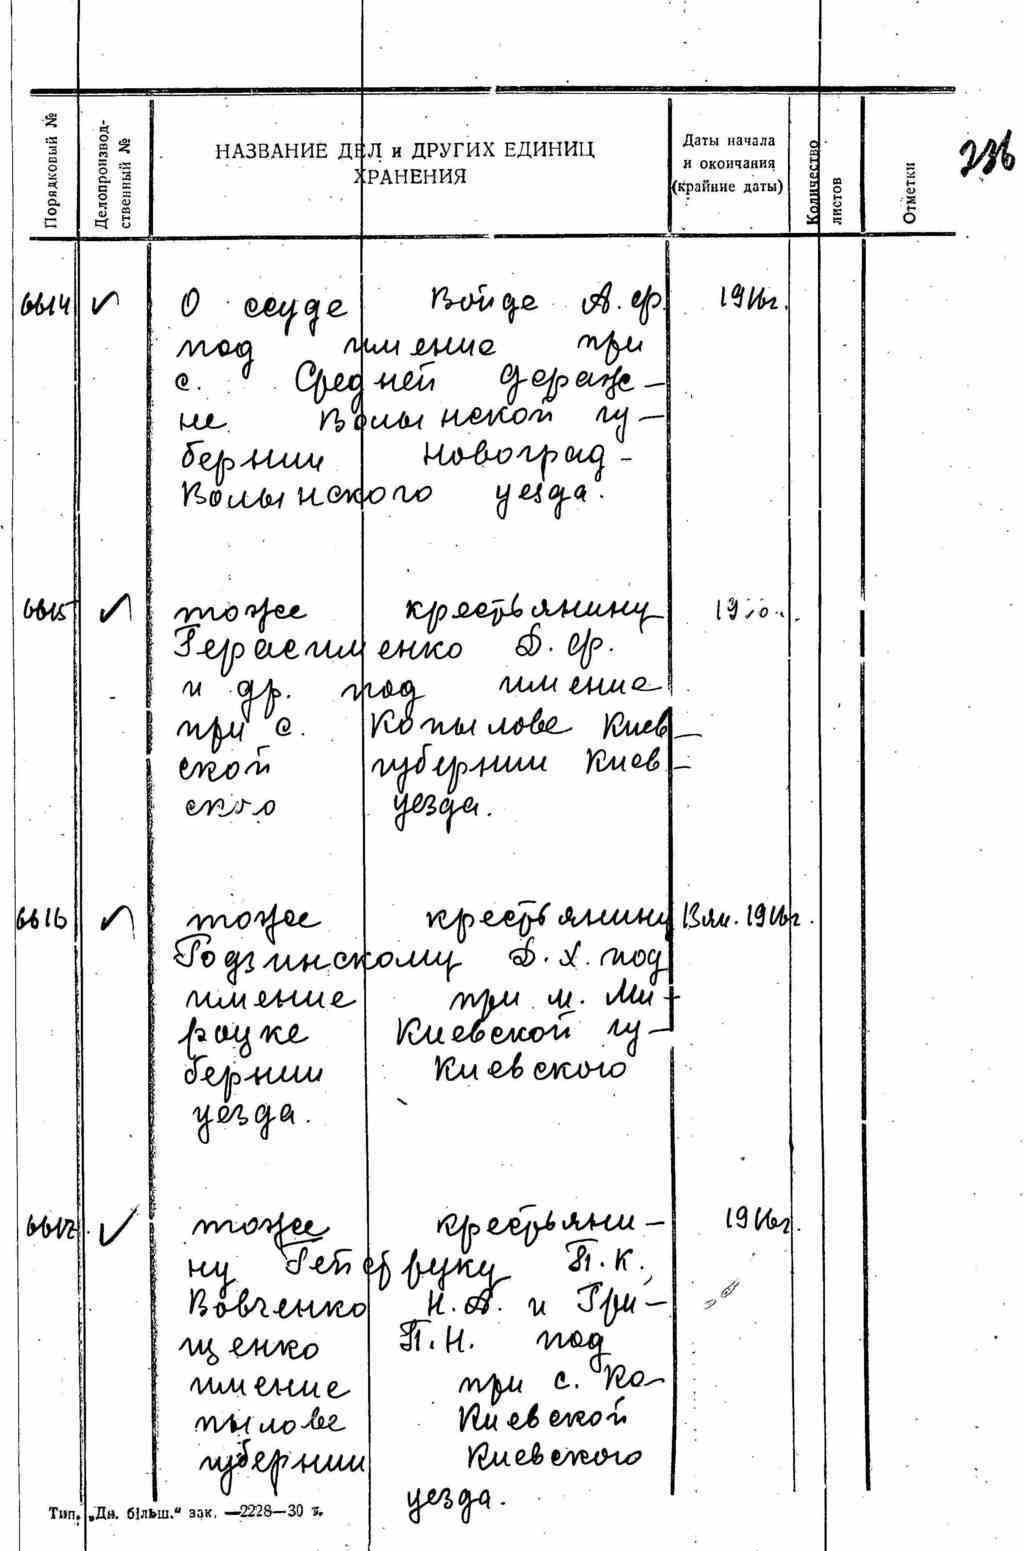 236
Порядковый №
Делопроизвод-
ственный №
НАЗВАНИЕ ДЕЛ и ДРУГИХ ЕДИНИЦ
ХРАНЕНИЯ
Даты начала
и окончания
(крайние даты)
Количество
листов
Отметки
6614 О ссуде Войде А.Ф. 1916г.
под имение при
с. Средней Дераж-
не Волынской гу-
бернии Новоград-
Волынского уезда.
6615 тоже крестьянину
Герасименко Д.Ф.
и др. под имение
при с. Копылове Киев-
ской губернии Киев-
ского уезда.
6616 тоже крестьянину 1916г.
Годзинскому Д.Х. под
имение при м. Ми-
роцке Киевской гу-
бернии Киевского
уезда.
6617 тоже крестьяни- 1916г.
ну П.К.,
Вовченко Н.А. и Гри-
щенко П.Н. под
имение при с. Ко-
пылове Киевской
губернии Киевского
уезда.
Тип. „Дн. більш.“ зак. —2228—30 т.